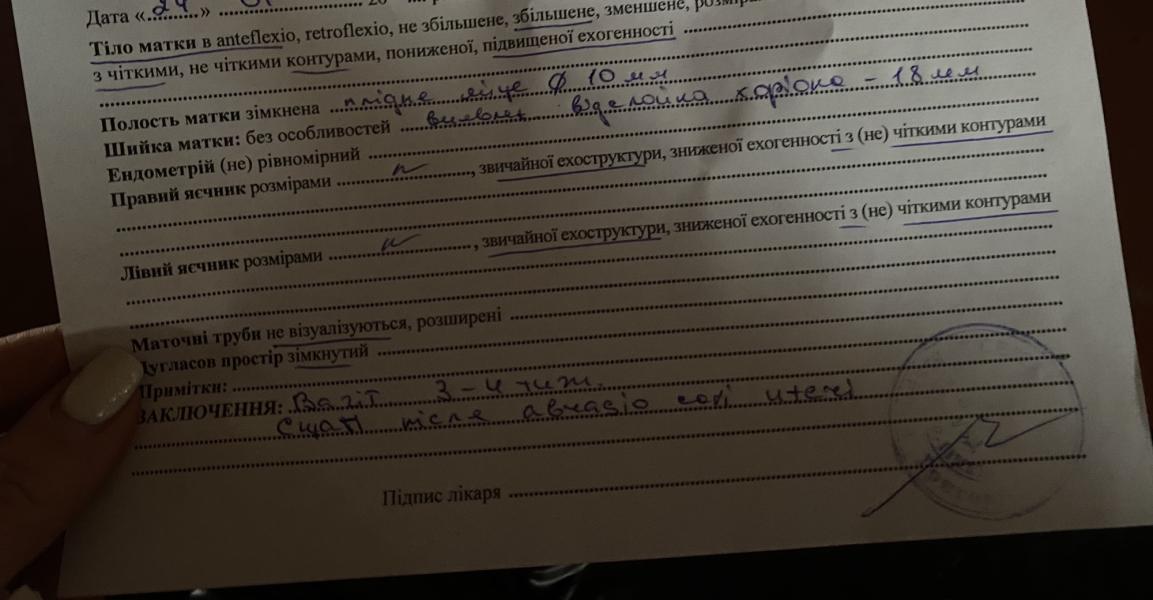 Дата «24»
Тіло матки в anteflexio, retroflexio, не збільшене, збільшене, зменшене,
з чіткими, не чіткими контурами, пониженої, підвищеної ехогенності
Полость матки зімкнена плідне яйце Ø 10 мм
Шийка матки: без особливостей відслойка хоріона – 18 мм
Ендометрій (не) рівномірний
Правий яєчник розмірами N, звичайної ехоструктури, зниженої ехогенності з (не) чіткими контурами
Лівий яєчник розмірами N, звичайної ехоструктури, зниженої ехогенності з (не) чіткими контурами
Маточні труби не візуалізуються, розширені
Дугласов простір зімкнутий
Примітки:
ЗАКЛЮЧЕННЯ: Вагіт 3–4 тиж.
після
Підпис лікаря